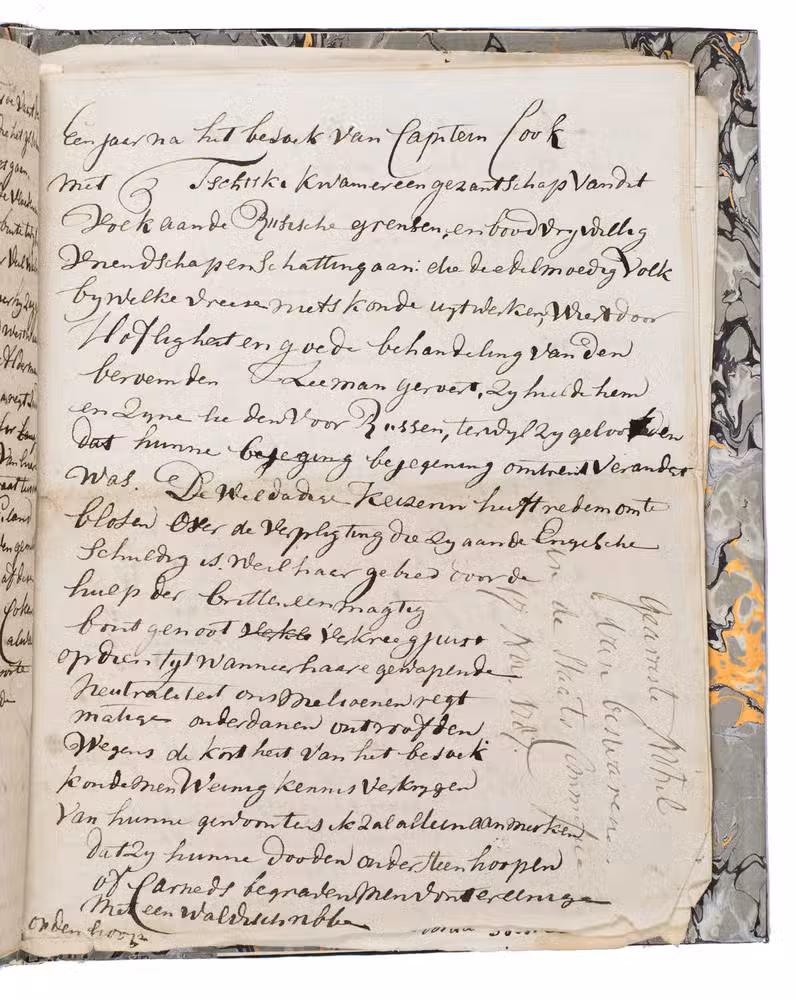 Een jaar na het besoek van Captein Cook
met Tschiske kwamer een gezantschap van dit
Volk aan de Russische grensen, en bood vrywillig
Vriendschap en Schatting aan: die die edelmoedig Volk
by welke vreese niets konde uytwerken, Wiert door
Hofligheit en goede behandeling van den
beroemden Zeeman gewert, Zy hielde hem
en Zyne lieden Voor Russen, terwyl Zy geloofden
dat hunne bejeging bejegening omtrent Verandert
was. De Weldadige Keizerin heeft redem omte
blosen Over de Verpligting die Zy aan de Engelsche
Schuldig is. Weil haar gebied door de
hulp der britten een magtig
bontgenoot Verkreeg juist
op dien tyt wanneer haare gewapende
Neutraliteit ons Melioenen regt
matige onderdanen ontroofden
Wegens de kortheit Van het besoek
konde men Weinig kennis Verkrygen
Van hunne gewoontens ik Zal alleen aanmerken
dat Zy hunne dooden onder Steenhoopen
of Carneds begraven Men Vont er eenige
Met een Walvischribbe